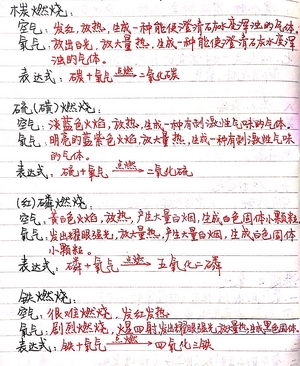 木炭燃烧:
空气:发红,放热,生成一种能使澄清石灰水变浑浊的气体.
氧气:放出白光,放大量热,生成一种能使澄清石灰水变浑
浊的气体。
表达式:碳+氧气 点燃→ 二氧化碳
硫(磺)燃烧:
空气:淡蓝色火焰,放热,生成一种有刺激性气味的气体.
氧气:明亮的蓝紫色火焰,放大量热,生成一种有刺激性气味
的气体。
表达式:硫+氧气 点燃→ 二氧化硫
(红)磷燃烧:
空气:黄白色火焰,放热,产生大量白烟,生成白色固体小颗粒.
氧气:发出耀眼强光,放大量热,产生大量白烟,生成白色固体
小颗粒。
表达式:磷+氧气 点燃→ 五氧化二磷
铁燃烧:
空气:很难燃烧,发红发热.
氧气:剧烈燃烧,火星四射,发出耀眼强光,放大量热,生成黑色固体.
表达式:铁+氧气 点燃→ 四氧化三铁